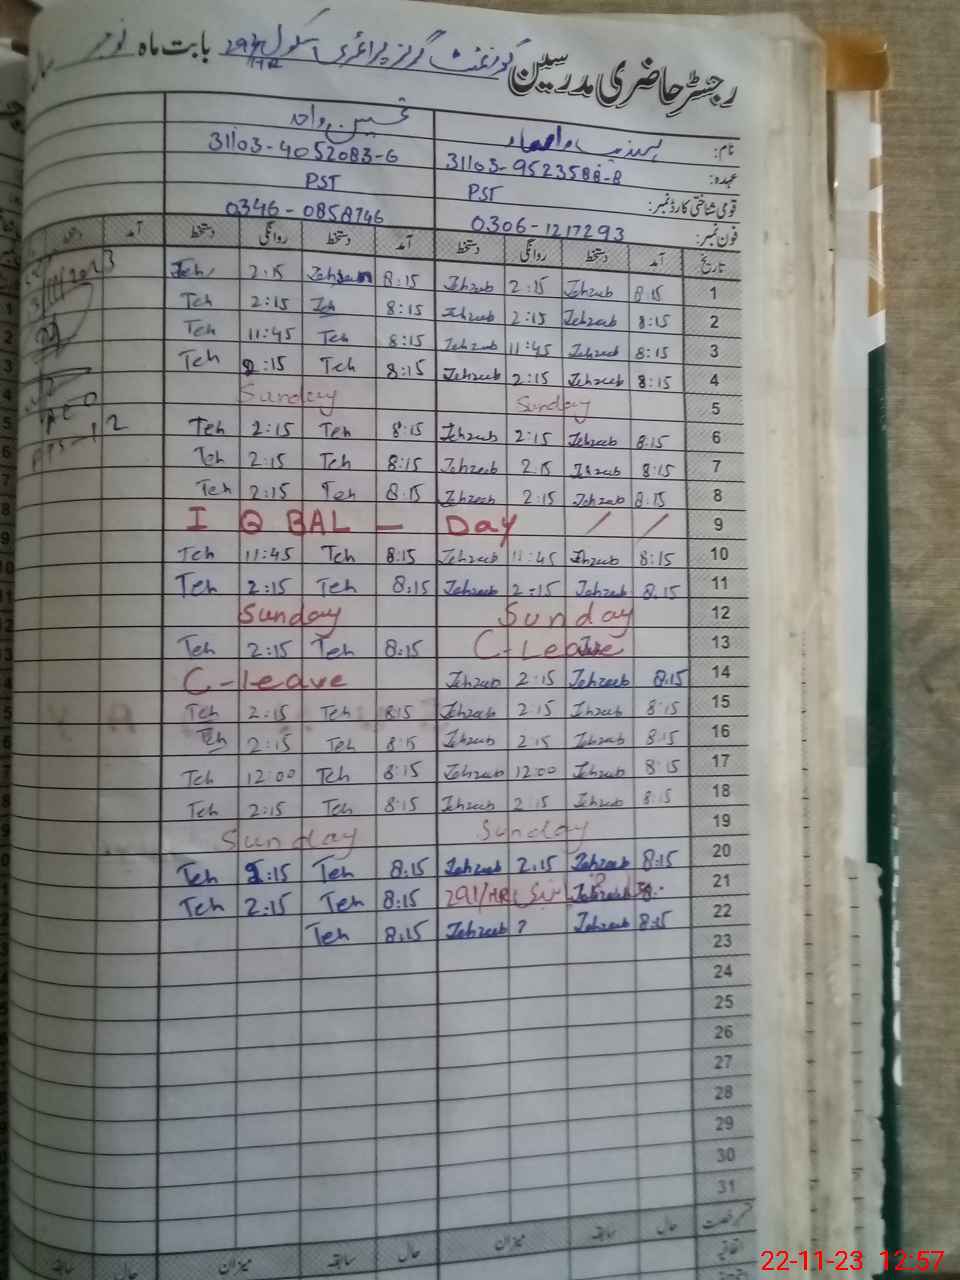 رجسٹر حاضری مدرسین گورنمنٹ گرلز پرائمری اسکول بابت ماہ نومبر
نام: تحسین واحد
عہدہ: 31103-9523588-8 31103-4052083-6
قومی شناختی کارڈ نمبر: PST PST
فون نمبر: 0306-1217293 0346-0858746
تاریخ آمد دستخط روانگی دستخط آمد دستخط روانگی دستخط آمد دستخط
1 8:15 Jehzeb 2:15 Jehzeb 8:15 2:15 Teh
2 8:15 Jehzeb 2:15 Jehzeb 8:15 Teh 2:15 Teh
3 8:15 Jehzeb 11:45 Jehzeb 8:15 Teh 11:45 Teh
4 8:15 Jehzeb 2:15 Jehzeb 8:15 Teh 2:15 Teh
5 Sunday Sunday
6 8:15 Jehzeb 2:15 Jehzeb 8:15 Teh 2:15 Teh
7 8:15 Jehzeb 2:15 Jehzeb 8:15 Teh 2:15 Teh
8 8:15 Jehzeb 2:15 Jehzeb 8:15 Teh 2:15 Teh
9 IQBAL - Day / /
10 8:15 Jehzeb 11:45 Jehzeb 8:15 Teh 11:45 Teh
11 8:15 Jehzeb 2:15 Jehzeb 8:15 Teh 2:15 Teh
12 Sunday Sunday
13 C-Leave 8:15 Teh 2:15 Teh
14 8:15 Jehzeb 2:15 Jehzeb C-leave
15 8:15 Jehzeb 2:15 Jehzeb 8:15 Teh 2:15 Teh
16 8:15 Jehzeb 2:15 Jehzeb 8:15 Teh 2:15 Teh
17 8:15 Jehzeb 12:00 Jehzeb 8:15 Teh 12:00 Teh
18 8:15 Jehzeb 2:15 Jehzeb 8:15 Teh 2:15 Teh
19 Sunday Sunday
20 8:15 Jehzeb 2:15 Jehzeb 8:15 Teh 2:15 Teh
21 Jehzeb 291/HR 8:15 Teh 2:15 Teh
22 8:15 Jehzeb ? Jehzeb 8:15 Teh
23
24
25
26
27
28
29
30
31
حال سابقہ میزان حال سابقہ میزان حال سابقہ
22-11-23 12:57